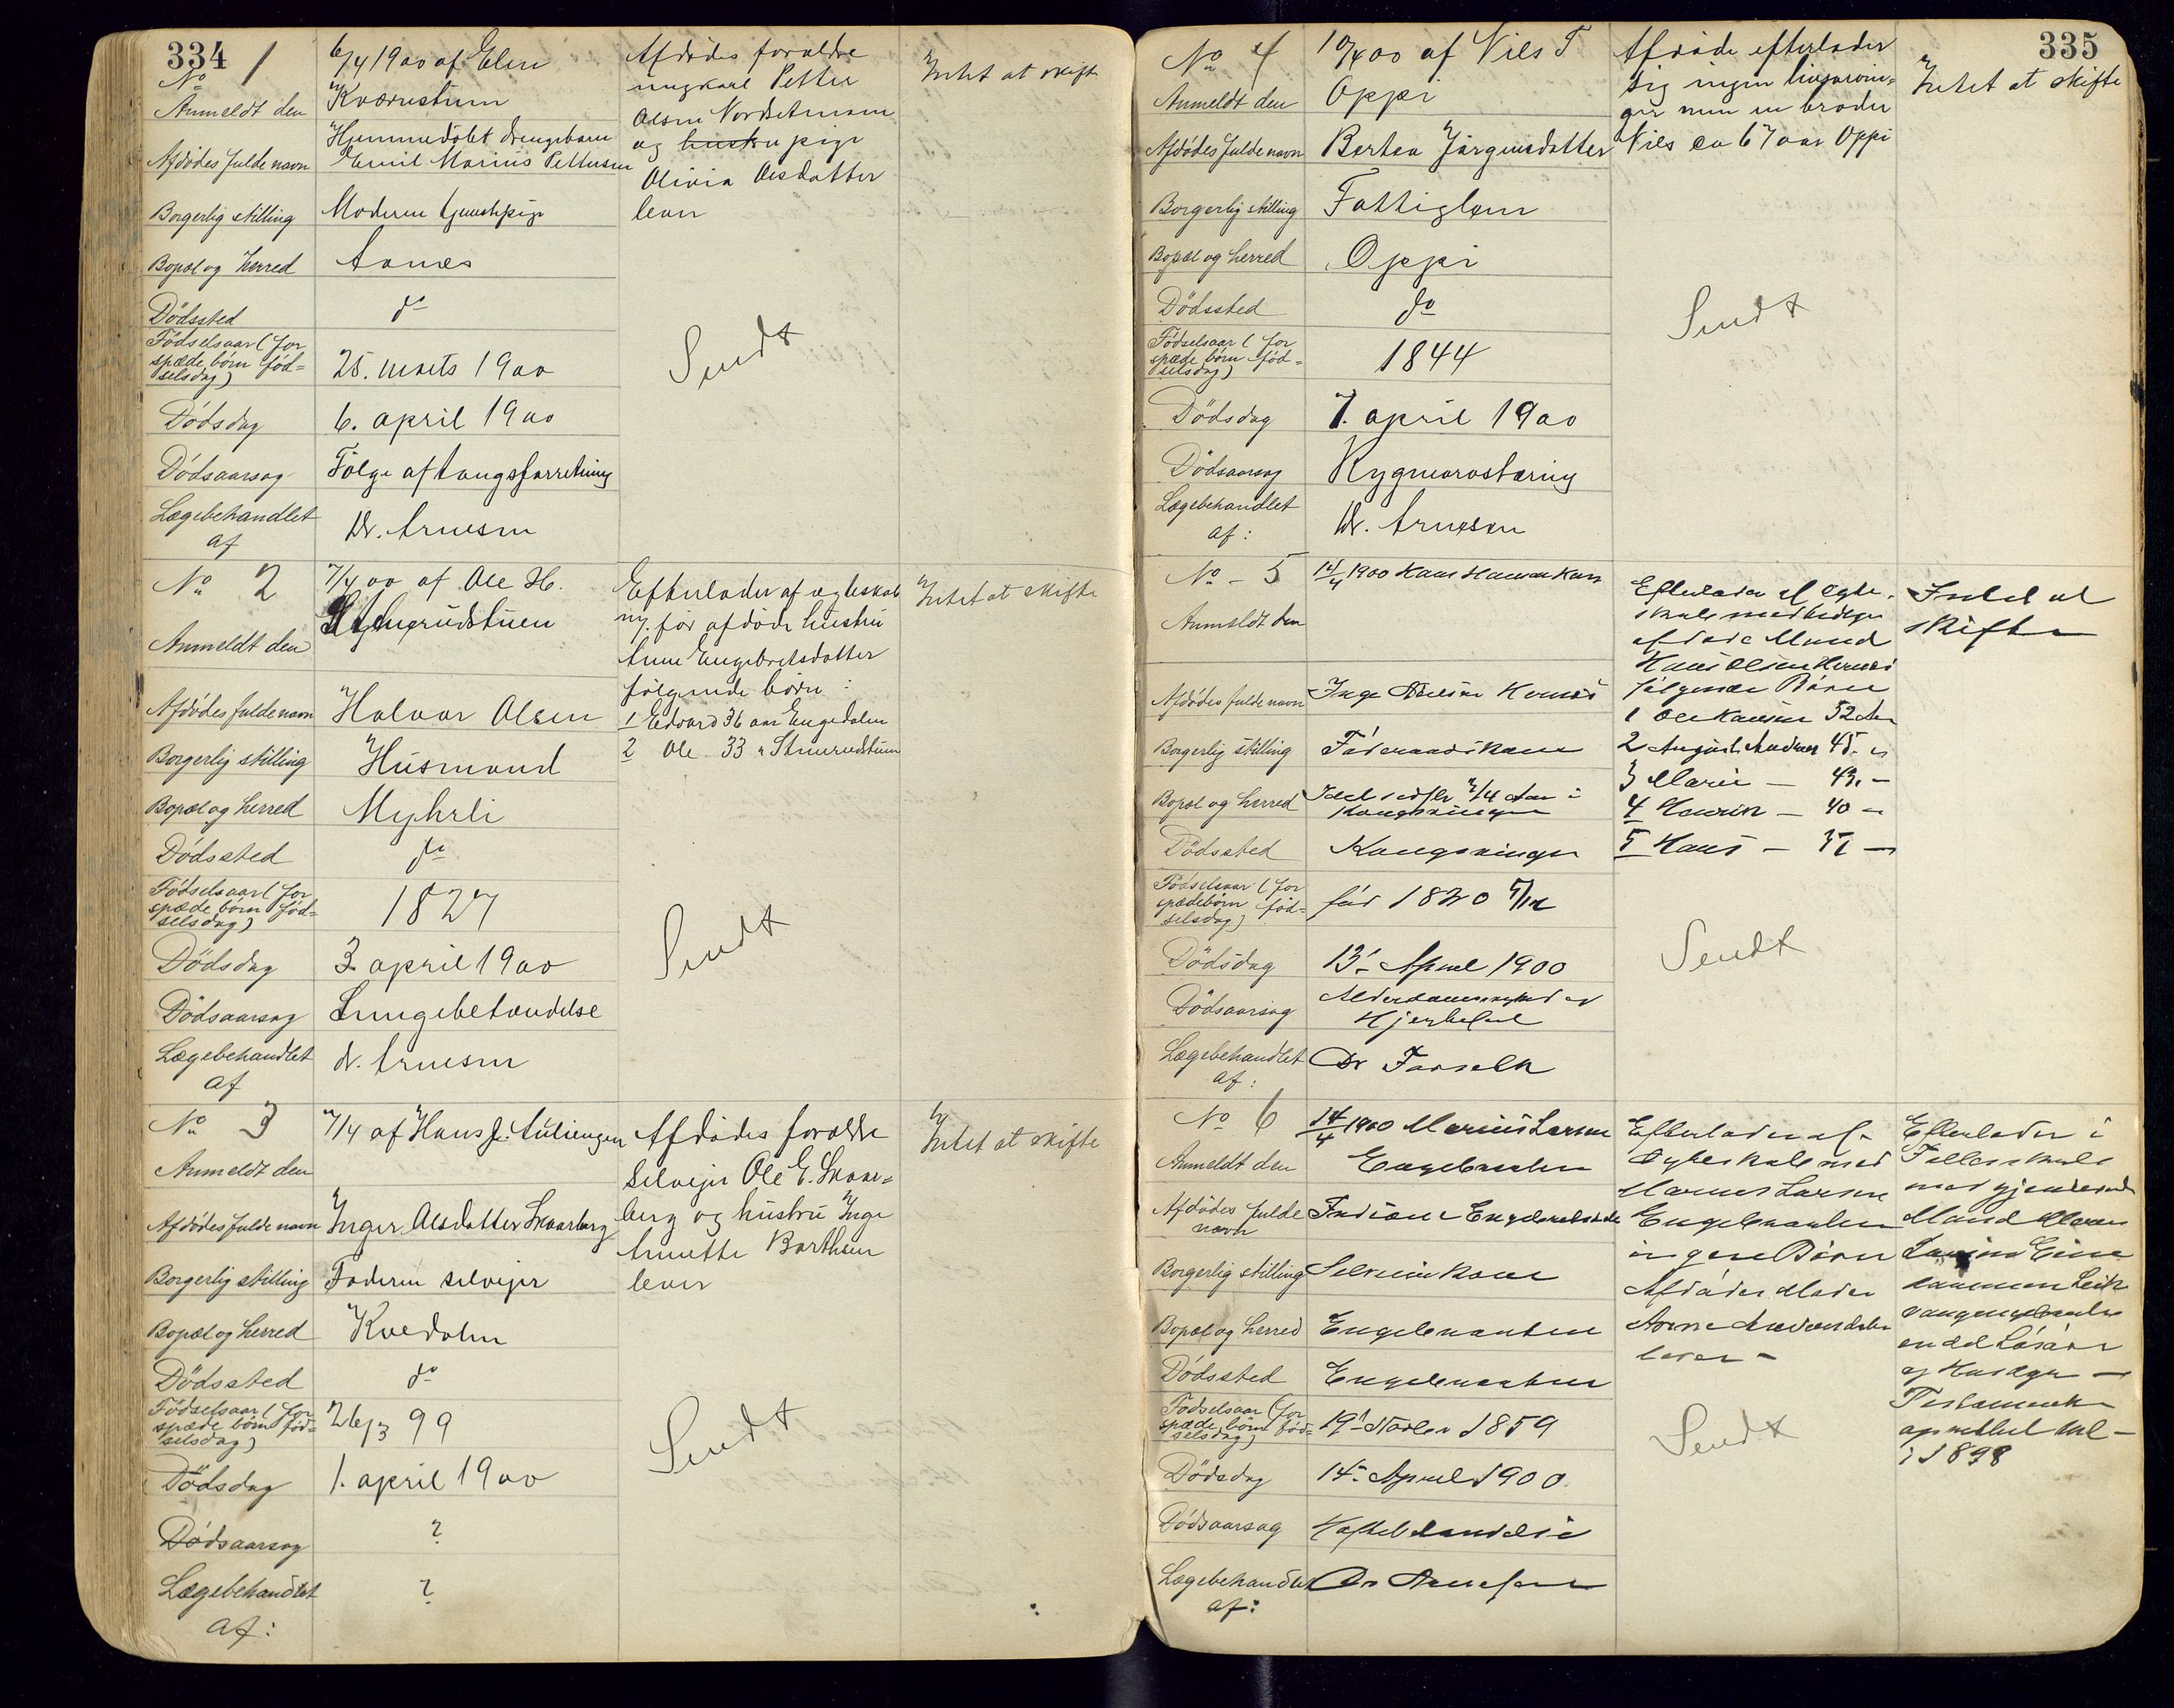 334
No 1
6/4 1900 af Elen
Kværnstuen
Anmeldt den
Afdødes fulde navn
Hjemmedøbt drengebarn
Emil Marius Pettersen
Borgerlig stilling
Moderen tjenestepige
Bopæl og herred
Aanæs
Dödssted
do
Födselsaar (for
spæde børn föd=
selsdag)
25. marts 1900
Dödsdag
6. april 1900
Dödsaarsag
Fölge af tangsforretning
Lægebehandlet
af
Dr. Arnesen
Afdødes forældre
ungkarl Petter
Olsen Nordset
og hustru pige
Olivia Olsdatter
lever
Intet at skifte
Sendt
No 2
7/4 00 af Ole H.
Anmeldt den
Afdødes fulde navn
Halvor Olsen
Borgerlig stilling
Husmand
Bopæl og herred
Myhrli
Dödssted
do
Födselsaar (for
spæde børn föd=
selsdag)
1827
Dödsdag
3. april 1900
Dödsaarsag
Lungebetændelse
Lægebehandlet
af
dr. Arnesen
Efterlader af egteskab
m. før afdøde hustru
Anne Engebretsdatter
følgende børn:
1 Edvard 36 aar Engedalen
2 Ole 33 "
Intet at skifte
Sendt
No 3
7/4 af Hans J. Auliengen
Anmeldt den
Afdødes fulde navn
Inger Olsdatter Skaarberg
Borgerlig stilling
Faderen selveier
Bopæl og herred
Kvedalen
Dödssted
do
Födselsaar (for
spæde børn föd=
selsdag)
26/3 99
Dödsdag
1. april 1900
Dödsaarsag
?
Lægebehandlet
af:
?
Afdødes forældre
selveier Ole E. Skaar=
berg og hustru Inge
Annette Barthsen
lever
Intet at skifte
Sendt
335
No 4
10/4 00 af Nils T
Oppi
Anmeldt den
Afdødes fulde navn
Bertea Jörgensdatter
Borgerlig stilling
Fattiglem
Bopæl og herred
Oppi
Dödssted
do
Födselsaar (for
spæde børn föd=
selsdag)
1844
Dödsdag
7. april 1900
Dödsaarsag
Rygmarvstæring
Lægebehandlet
af:
Dr. Arnesen
Afdøde efterlader
sig ingen livsarvin=
ger men en broder
Nils ca 67 aar Oppi
Intet at skifte
Sendt
No - 5
14/4 1900 Hans Hansen
Anmeldt den
Afdødes fulde navn
Inge
Borgerlig stilling
Föderaadskone
Bopæl og herred
Kongsvinger
Dödssted
Kongsvinger
Födselsaar (for
spædebørn föd=
selsdag)
föd 1820
Dödsdag
13 - April 1900
Dödsaarsag
Hjertefeil
Lægebehandlet
af:
Dr
Efterlader af Egte-
skab med
afdøde Mand
Hans Olsen
følgende Børn
1 Ole Hansen 52 Aar
2 August 45 -
3 Marie - 43 -
4 Henrik - 40 -
5 Hans -
Intet at
skifte
Sendt
No 6
14/4 1900 Marius Larsen
Anmeldt den
Afdødes fulde
navn
Borgerlig stilling
Selveierkone
Bopæl og herred
Dödssted
Födselsaar (for
spæde børn föd=
selsdag)
1859
Dödsdag
14 - April 1900
Dödsaarsag
Lægebehandlet
af:
Dr Arnesen
Efterlader af
Egteskab med
Marius Larsen
ingen Børn
Afdødes Moder
lever -
Efterlader i
Fællesskab
med gjenlevende
Mand
en del Løsøre
Testamente
oprettet
i 1898
Sendt